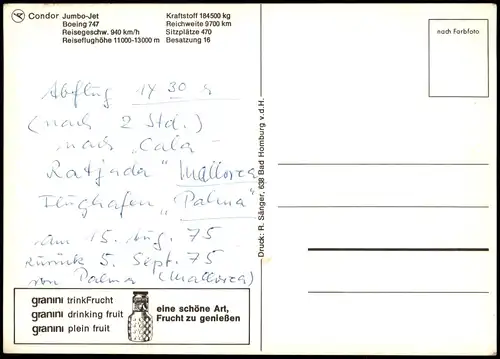 Condor Jumbo-Jet
Boeing 747
Reisegeschw. 940 km/h
Reiseflughöhe 11000-13000 m
Kraftstoff 184500 kg
Reichweite 9700 km
Sitzplätze 470
Besatzung 16
nach Farbfoto
Abflug 14 30 h
(nach 2 Std.)
nach "Cala-
Ratjada" Mallorca
Flughafen "Palma"
am 15. Aug. 75
zurück 5. Sept. 75
von Palma (Mallorca)
Druck: R. Sänger, 638 Bad Homburg v.d.H.
granini trinkFrucht
granini drinking fruit
granini plein fruit
eine schöne Art,
Frucht zu genießen